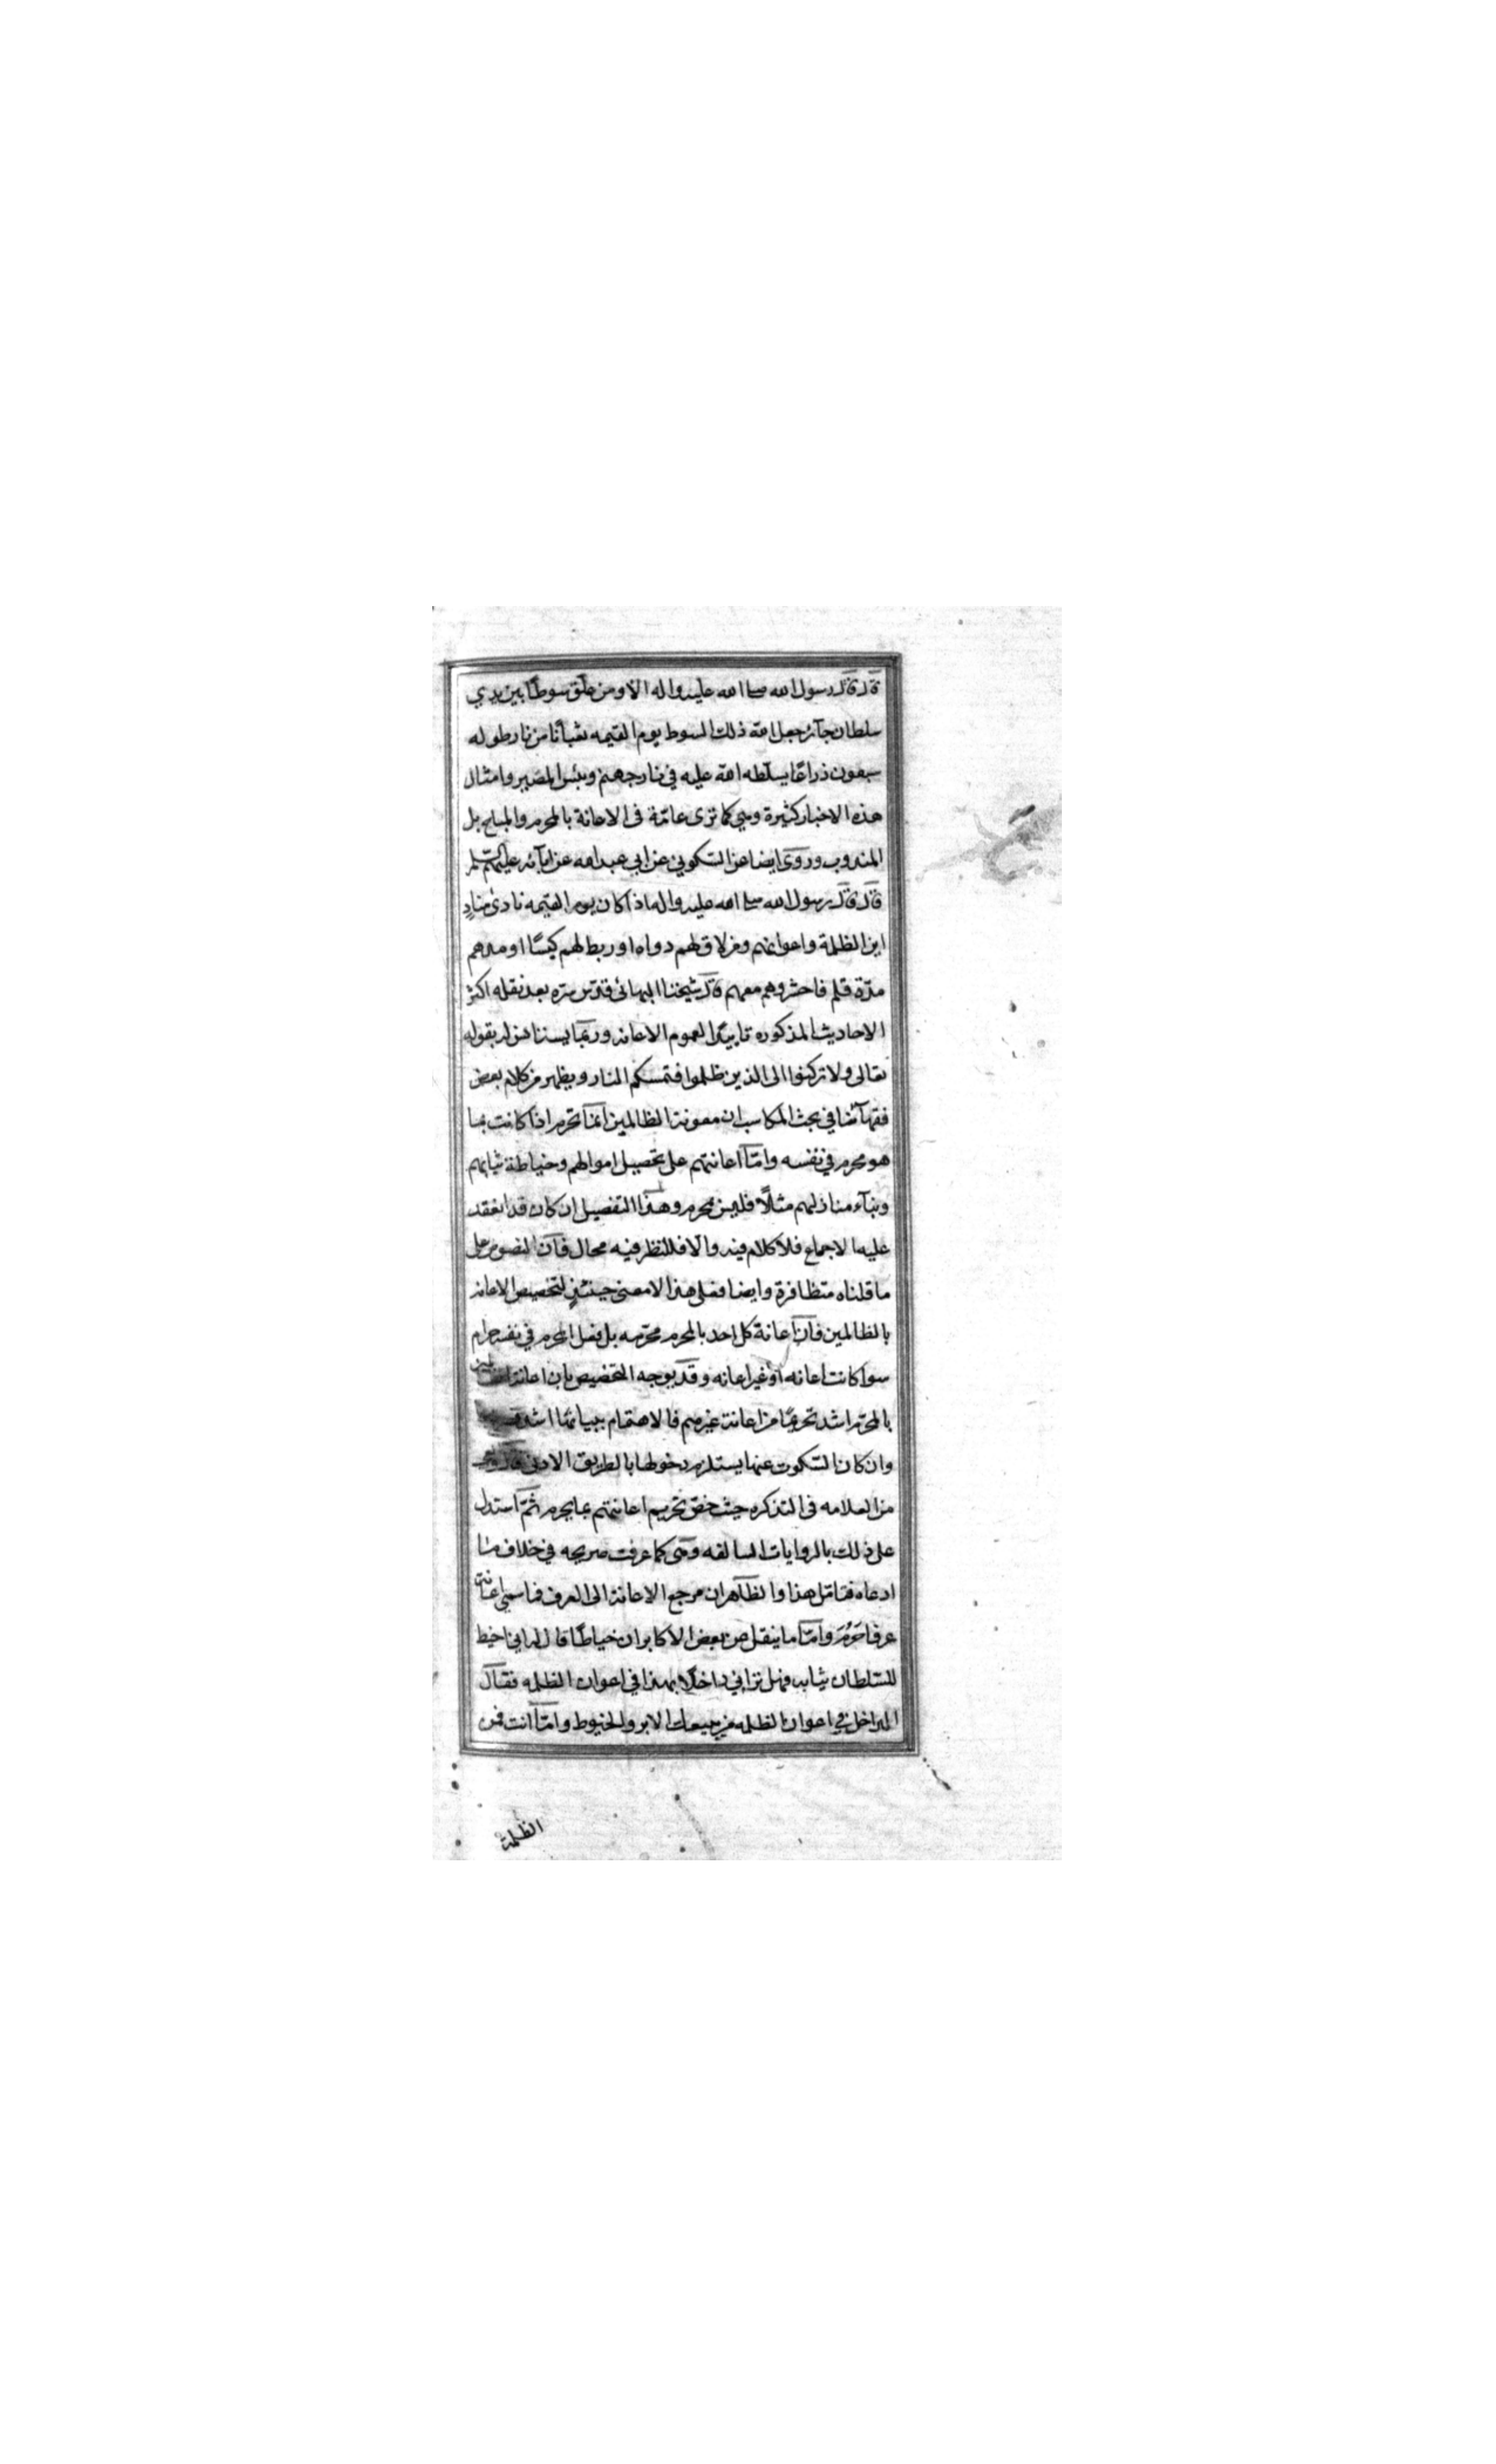 قال قال رسول الله صلى الله عليه واله الا ومن علق سوطا بين يدي
سلطان جآئر جعل الله ذلك السوط يوم القيمه ثعبانًا من نار طوله
سبعون ذراعًا يسلطه الله عليه في نار جهنم وبئس المصير وامثال
هذه الاخبار كثيرة وهي كما ترى عامّة فى الاعانة بالمحرم والمباح بل
المندوب وروى ايضا عن السّكوني عن ابي عبد الله عن ابآئه عليهم السّلم
قال قال رسول الله صلى الله عليه واله اذا كان يوم القيمه نادى منادٍ
اين الظلمة واعوانهم ومن لاق لهم دواه او ربط لهم كيسًا او مد لهم
مدّة قلم فاحشروهم معهم قال شيخنا البهائى قدّس سرّه بعد نقله اكثر
الاحاديث المذكوره تاييدًا لعموم الاعانه وربّما يستانس له بقوله
تعالى ولا تركنوا الى الذين ظلموا فتمسكم النار ويظهر من كلام بعض
فقهآئنا في بحث المكاسب ان معونة الظالمين انّما تحرم اذا كانت بما
هو محرم في نفسه وامّا اعانتهم على تحصيل اموالهم وخياطة ثيابهم
وبنآء منازلهم مثلًا فليس بمحرم وهذا التفصيل ان كان قد انعقد
عليه الاجماع فلا كلام فيه والّا فللنظر فيه مجال فانّ النصوص على
ما قلناه متظافرة وايضا فعلى هذا لا معنى حينئذٍ لتخصيص الاعانه
بالظالمين فانّ اعانة كل احد بالمحرم محرّمه بل فعل المحرم في نفسه حرام
سوا كانت اعانه او غير اعانه وقد يوجه التخصيص بان اعانة الظالمين
بالمحرّم اشد تحريمًا من اعانة غيرهم فالاهتمام ببيانها اشد
وان كان السّكوت عنها يستلزم دخولها بالطريق الادنى
من العلامه فى التذكره حيث خصّ تحريم اعانتهم بما يحرم ثمّ استدل
على ذلك بالروايات السالفه وهى كما عرفت صريحه في خلاف ما
ادعاه فتامّل هذا والظاهر ان مرجع الاعانة الى العرف فما سمّي اعانة
عرفا حَرُمَ وامّا ما ينقل عن بعض الاكابر ان خياطًا قال له اني اخيط
للسّلطان ثيابه فهل تراني داخلًا بهذا في اعوان الظلمه فقال
الداخل في اعوان الظلمه من يبيعك الابر والخيوط وامّا انت فمن
الظلمة